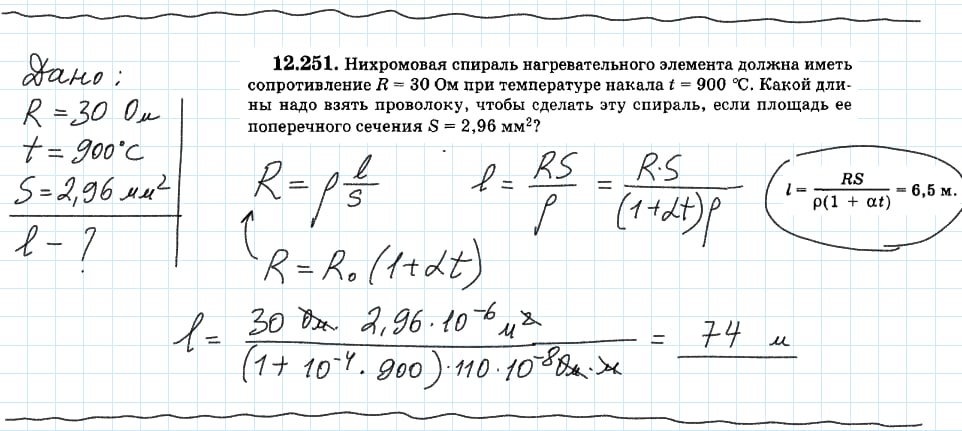 Дано:
R = 30 Ом
t = 900°C
S = 2,96 мм²
l - ?
12.251. Нихромовая спираль нагревательного элемента должна иметь
сопротивление R = 30 Ом при температуре накала t = 900 °C. Какой дли-
ны надо взять проволоку, чтобы сделать эту спираль, если площадь ее
поперечного сечения S = 2,96 мм²?
R = ρ l/S
l = RS/ρ = R·S/((1+αt)ρ)
l = RS/(ρ(1 + αt)) = 6,5 м.
R = R₀(1+αt)
l = (30 Ом · 2,96·10⁻⁶ м²)/((1+10⁻⁴·900)·110·10⁻⁸ Ом·м) = 74 м